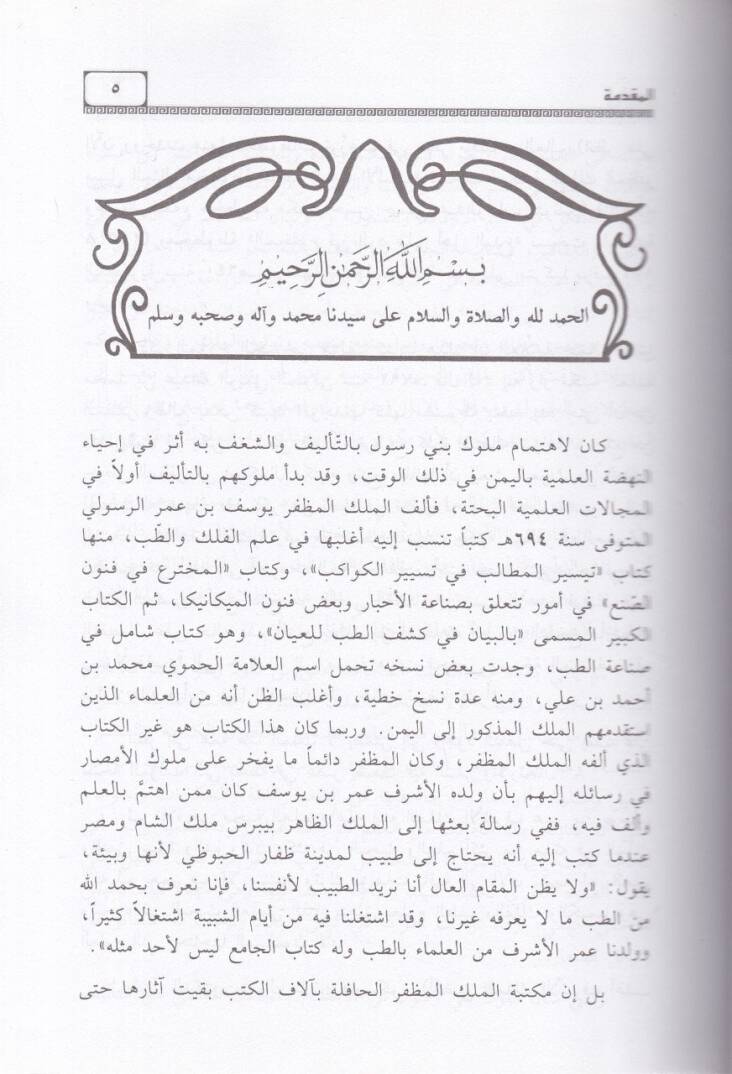 المقدمة
٥
بسم الله الرحمن الرحيم
الحمد لله والصلاة والسلام على سيدنا محمد وآله وصحبه وسلم
كان لاهتمام ملوك بني رسول بالتّأليف والشغف به أثر في إحياء
النهضة العلمية باليمن في ذلك الوقت، وقد بدأ ملوكهم بالتأليف أولاً في
المجالات العلمية البحتة، فألف الملك المظفر يوسف بن عمر الرسولي
المتوفى سنة ٦٩٤هـ كتباً تنسب إليه أغلبها في علم الفلك والطّب، منها
كتاب «تيسير المطالب في تسيير الكواكب»، وكتاب «المخترع في فنون
الصّنع» في أمور تتعلق بصناعة الأحبار وبعض فنون الميكانيكا، ثم الكتاب
الكبير المسمى «بالبيان في كشف الطب للعيان»، وهو كتاب شامل في
صناعة الطب، وجدت بعض نسخه تحمل اسم العلامة الحموي محمد بن
أحمد بن علي، ومنه عدة نسخ خطية، وأغلب الظن أنه من العلماء الذين
استقدمهم الملك المذكور إلى اليمن. وربما كان هذا الكتاب هو غير الكتاب
الذي ألفه الملك المظفر، وكان المظفر دائماً ما يفخر على ملوك الأمصار
في رسائله إليهم بأن ولده الأشرف عمر بن يوسف كان ممن اهتمَّ بالعلم
وألف فيه، ففي رسالة بعثها إلى الملك الظاهر بيبرس ملك الشام ومصر
عندما كتب إليه أنه يحتاج إلى طبيب لمدينة ظفار الحبوظي لأنها وبيئة،
يقول: «ولا يظن المقام العال أنا نريد الطبيب لأنفسنا، فإنا نعرف بحمد الله
من الطب ما لا يعرفه غيرنا، وقد اشتغلنا فيه من أيام الشبيبة اشتغالاً كثيراً،
وولدنا عمر الأشرف من العلماء بالطب وله كتاب الجامع ليس لأحد مثله».
بل إن مكتبة الملك المظفر الحافلة بآلاف الكتب بقيت آثارها حتى